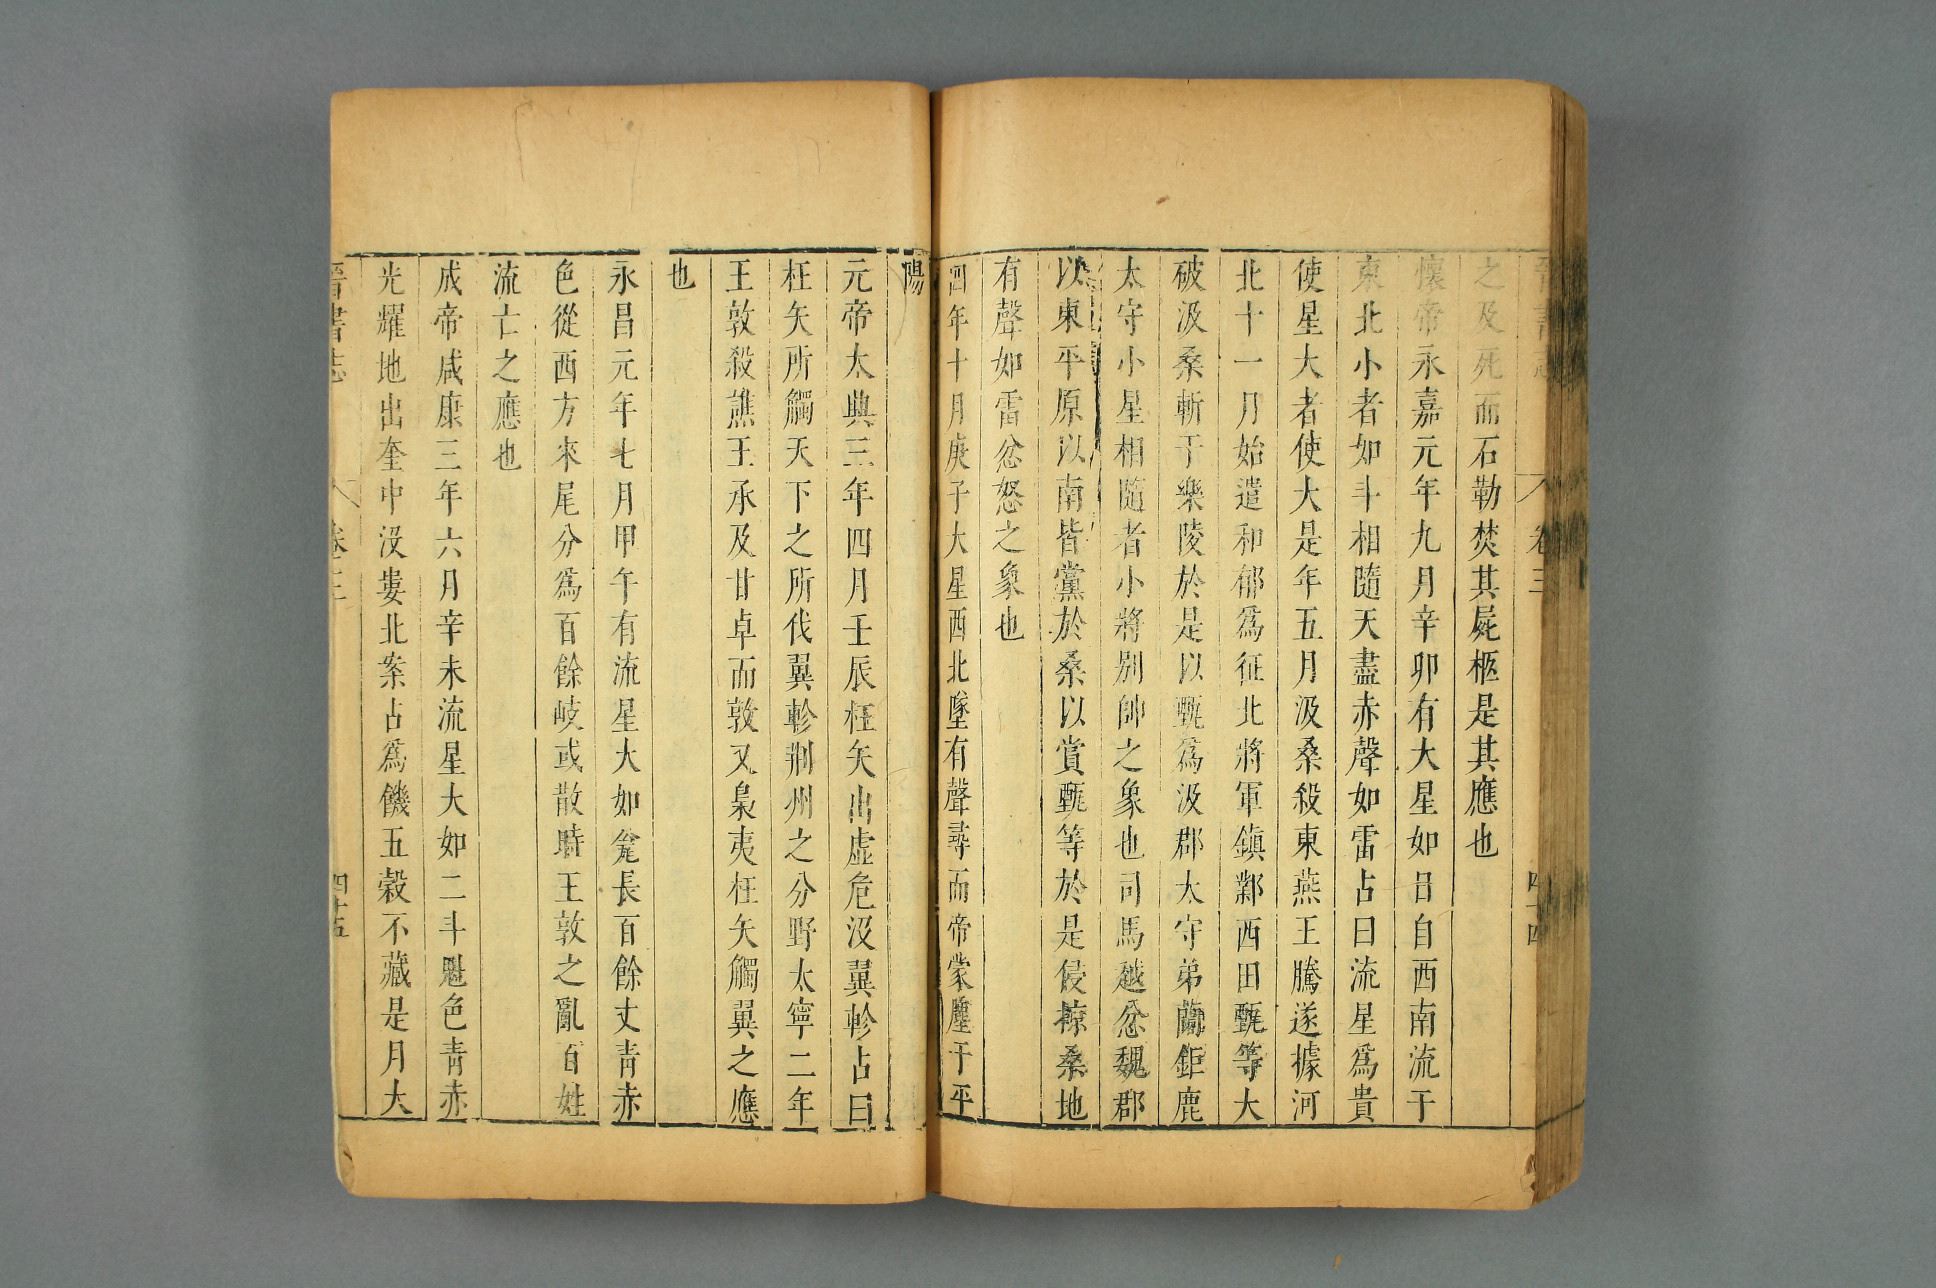 晉書志 卷三 四十四
之及死而石勒焚其屍柩是其應也
懷帝永嘉元年九月辛卯有大星如日自西南流于
東北小者如斗相隨天盡赤聲如雷占曰流星爲貴
使星大者使大是年五月汲桑殺東燕王騰遂據河
北十一月始遣和郁爲征北將軍鎭鄴西田甄等大
破汲桑斬于樂陵於是以甄爲汲郡太守弟蘭鉅鹿
太守小星相隨者小將別帥之象也司馬越忿魏郡
以東平原以南皆黨於桑以賞甄等於是侵掠桑地
有聲如雷忿怒之象也
四年十月庚子大星西北墜有聲尋而帝蒙塵于平
陽
元帝太興三年四月壬辰枉矢出虛危沒翼軫占曰
枉矢所觸天下之所伐翼軫荆州之分野太寧二年
王敦殺譙王承及甘卓而敦又梟夷枉矢觸翼之應
也
永昌元年七月甲午有流星大如瓮長百餘丈靑赤
色從西方來尾分爲百餘岐或散時王敦之亂百姓
流亡之應也
成帝咸康三年六月辛未流星大如二斗魁色靑赤
光耀地出奎中沒婁北案占爲饑五穀不藏是月大
晉書志 卷三 四十五